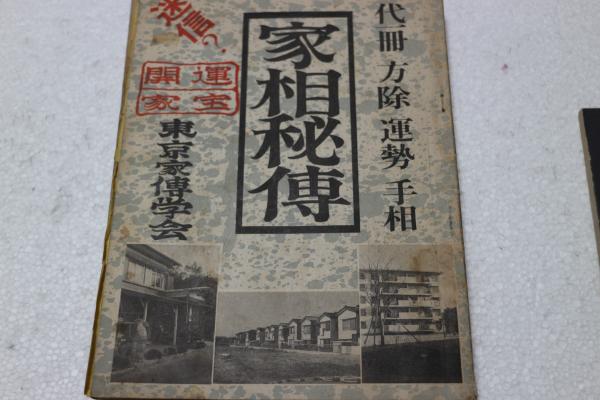 代一冊 方除 運勢 手相
家相秘傳
迷信?
開運
家宝
東京家傳学会